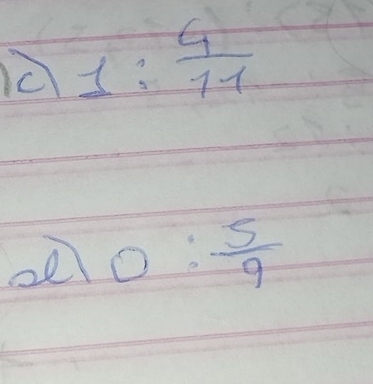 c) 1 : 4/11
d) 0 : 5/9